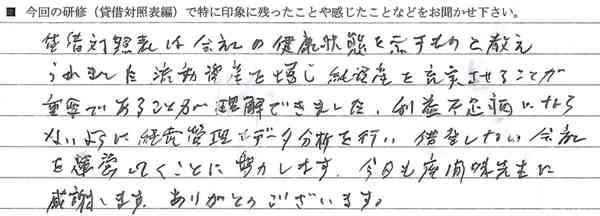 ■ 今回の研修（貸借対照表編）で特に印象に残ったことや感じたことなどをお聞かせ下さい。
貸借対照表は会社の健康状態を示すものと教え
られました 流動資産を増し純資産を充実させることが
重要であることが理解できました。利益不足病になら
ないように経営管理とデータ分析を行い 借金しない会社
を運営していくことに努力します。今日も 先生に
感謝します。ありがとうございます。